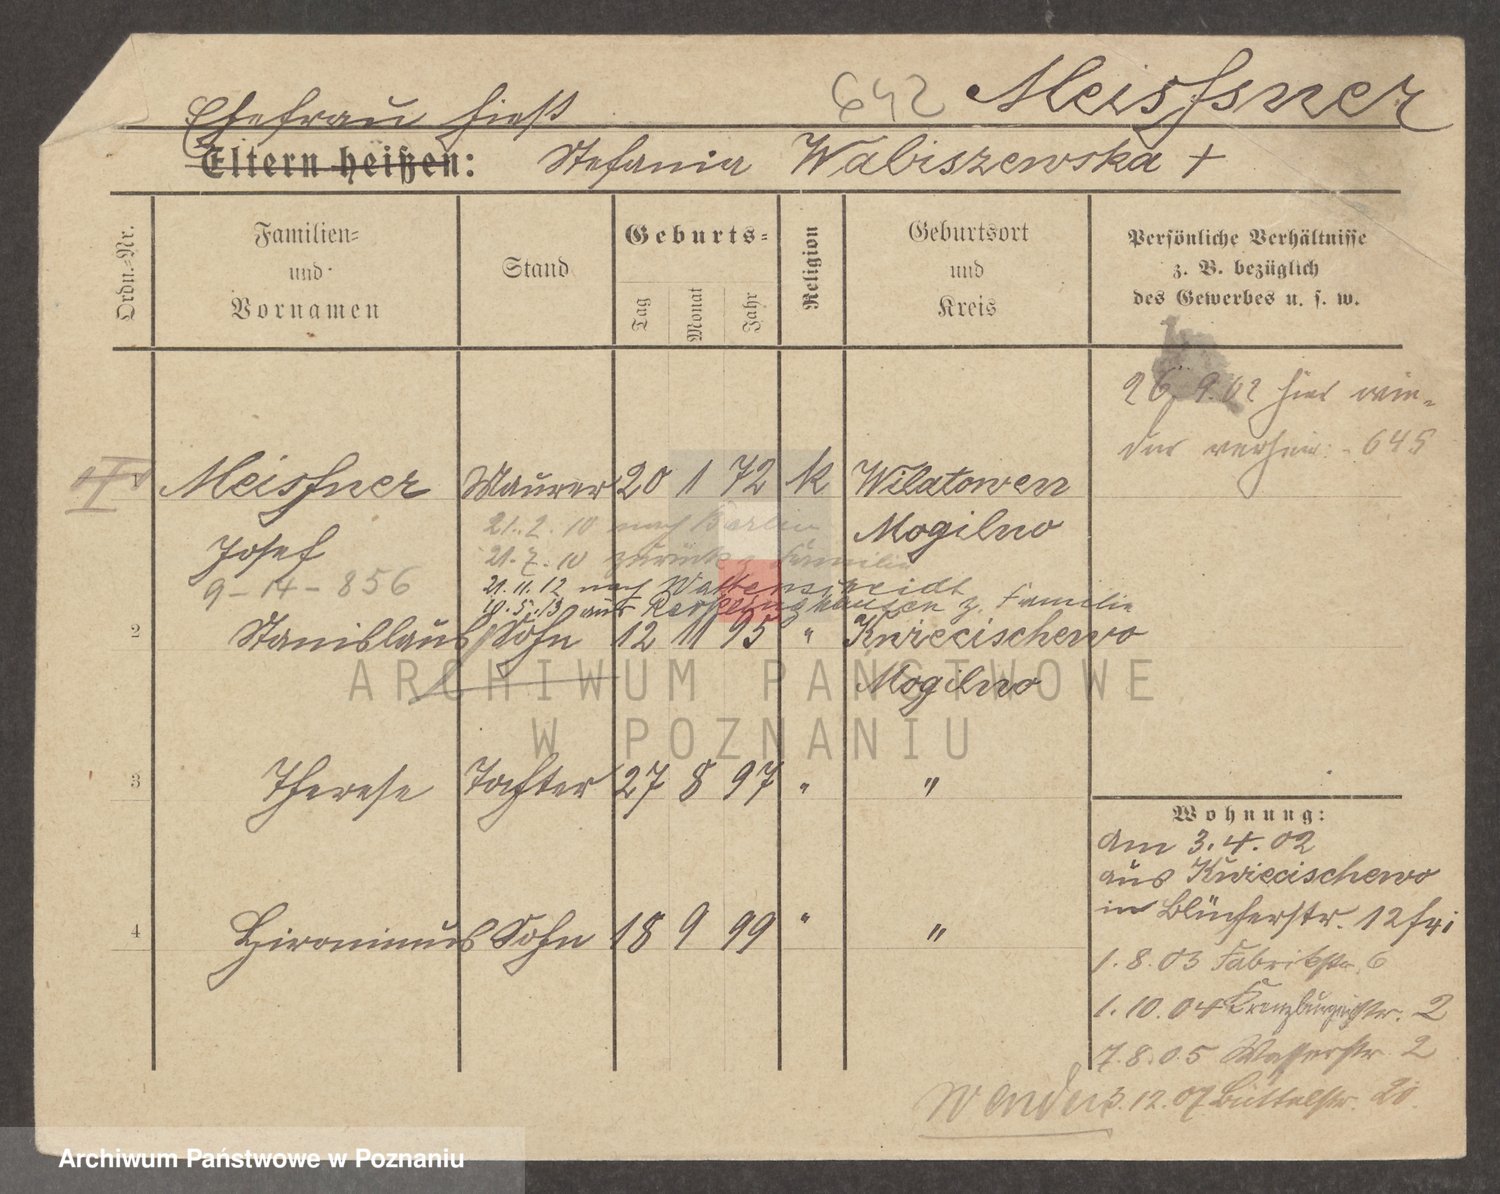 642 Meissner
Ehefrau hieß
Eltern heißen: Stefania Wabiszewska +
Ordn.-Nr.
Familien-
und
Vornamen
Stand
Geburts-
Tag
Monat
Jahr
Religion
Geburtsort
und
Kreis
Persönliche Verhältnisse
z. B. bezüglich
des Gewerbes u. s. w.
26.9.02 hier wie-
der verheir. - 645
I Meissner Maurer 20 1 72 k Wilatowen
Josef 21.2.10 nach Berlin Mogilno
21.7.10 zurück z. Familie
9-14-856 21.11.12 nach Wattenscheidt
18.5.13 aus Recklinghausen z. Familie
2 Stanislaus Sohn 12 11 95 " Kwiecischewo
Mogilno
3 Therese Tochter 27 8 97 " "
4 Hironimus Sohn 18 9 99 " "
Wohnung:
am 3.4.02
aus Kwiecischewo
in Blücherstr. 12
1.8.03 Fabrikstr. 6
1.10.04 Kreuzburgerstr. 2
7.8.05 Wasserstr. 2
Wenden 3.12.07 Büttelstr. 20.
ARCHIWUM PAŃSTWOWE
W POZNANIU
Archiwum Państwowe w Poznaniu